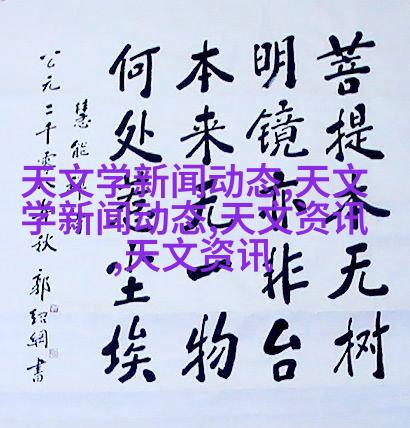 菩提本无树
明镜亦非台
本来无一物
何处惹尘埃
慧能
公元二千零八年秋 郭绍綱書
天文学新闻动态,天文
学新闻动态,天文资讯
,天文资讯